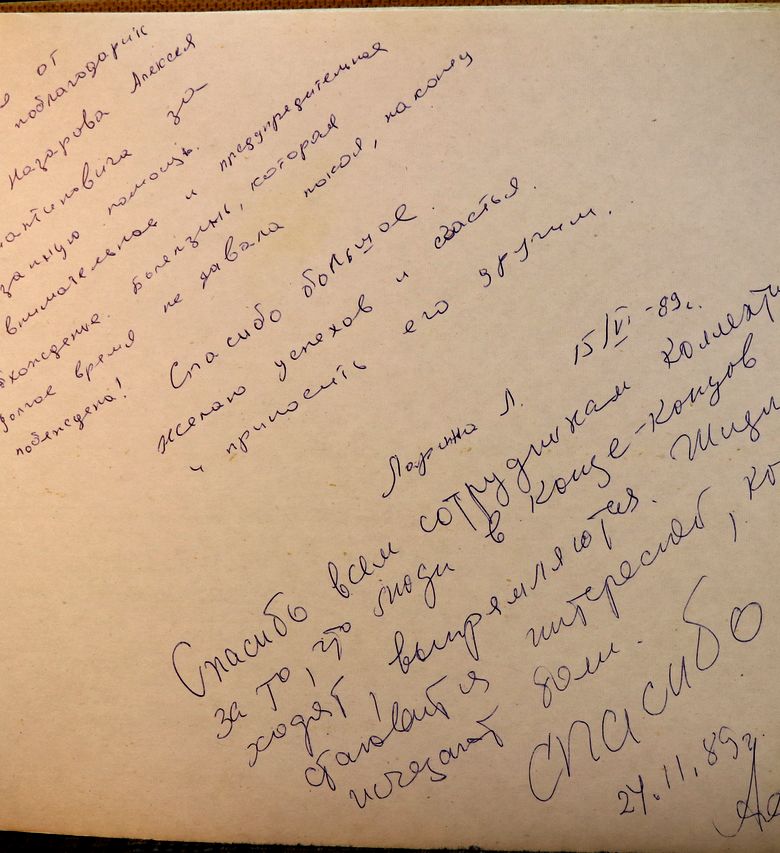 от
поблагодарить
Назарова Алексея
за
помощь.
внимательное и предупредительное
Болезнь, которая
долгое время не давала покоя, наконец
побеждена! Спасибо большое.
Желаю успехов и счастья
и приносить его другим.
Ларина Л. 15/VI-89г.
Спасибо всем сотрудникам
за то, что люди в конце-концов
ходят, выпрямляются.
становится интересней,
исчезают боли.
СПАСИБО
24.11.89г.